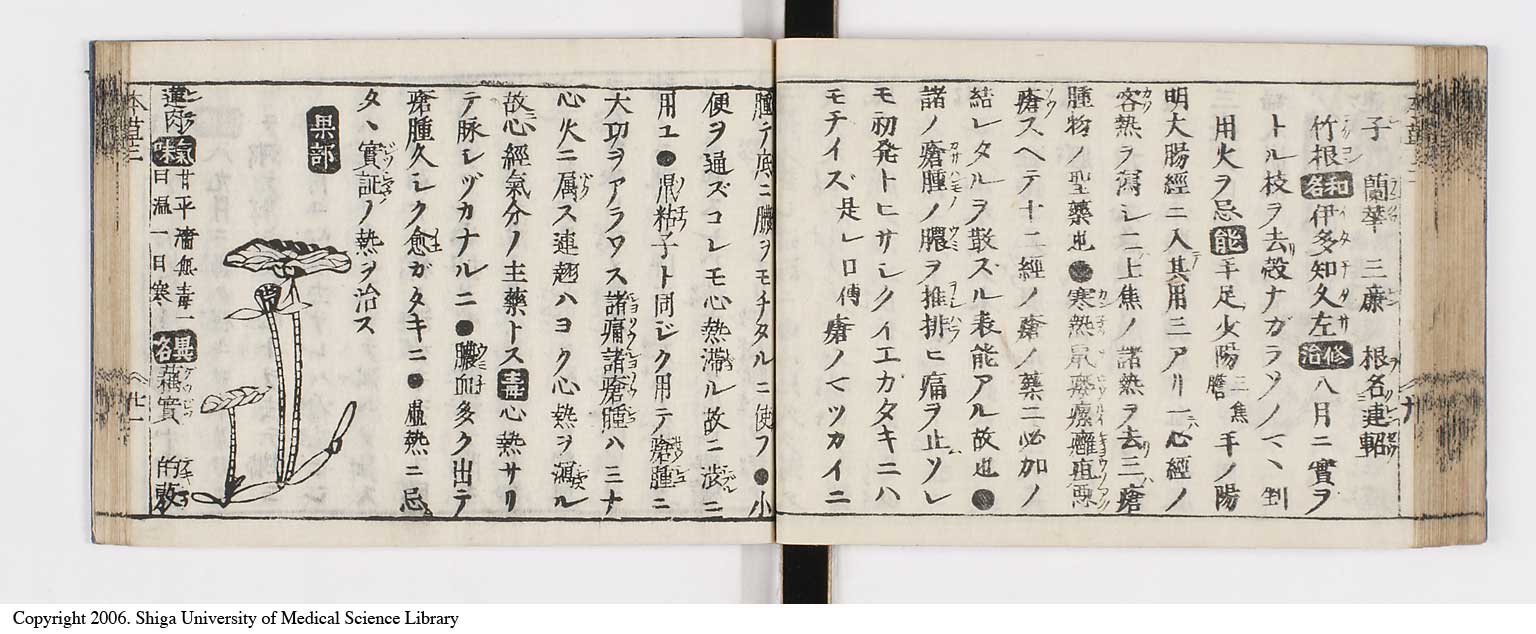 子 蘭華 三廉 根名連軺
竹根 和名 伊多知久左 修治 八月ニ實ヲ
トル枝ヲ去殻ナガラソノマヽ剉
用火ヲ忌 能 手足少陽 三焦膽 手ノ陽
明大腸經ニ入其用三アリ一心經ノ
客熱ヲ瀉シ二上焦ノ諸熱ヲ去三瘡
腫物ノ聖藥也●寒熱鼠瘻瘰癧疽
瘡スヘテ十二經ノ瘡ノ藥ニ必加ノ
結レタルヲ散ズル表能アル故也●
諸ノ瘡腫ノ膿ヲ推排ヒ痛ヲ止ソレ
モ初発トヒサシクイエカタキニハ
モチイズ是レ口傳瘡ノマツカイニ
腫テ底ニ膿ヲモチタルニ使フ●小
便ヲ通ズコレモ心熱滞ル故ニ渋ニ
用ユ●鼠粘子ト同ジク用テ瘡腫ニ
大功ヲアラワス諸痛諸瘡腫ハ三ナ
心火ニ属ス連翹ハヨク心熱ヲ瀉ル
故心經氣分ノ主藥トス 毒 心熱サリ
テ脉シヅカナルニ●膿血多ク出テ
瘡腫久シク愈ガタキニ●虚熱ニ忌
タヽ實証ノ熱ヲ治ス
果部
蓮肉 氣味 甘平濇無毒一曰温一曰寒 異名 藕實 的